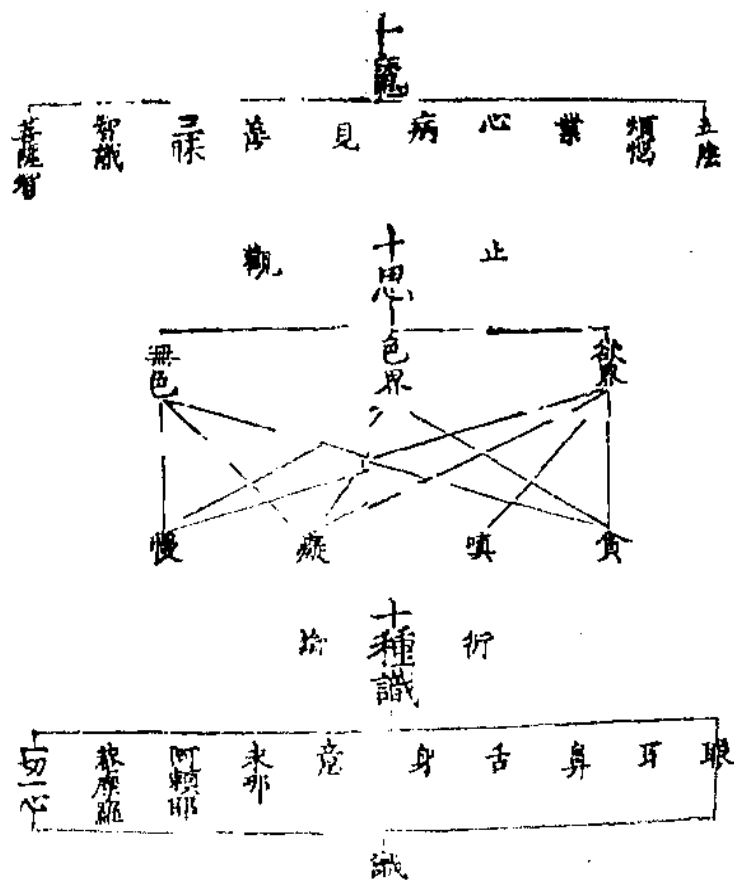 十魔
五陰
煩惱
業
心
病
見
善
三昧
智識
菩薩智
止觀
十思
欲界
色界
無色
貪
嗔
癡
慢
衍
十種識
眼
耳
鼻
舌
身
意
末那
阿賴耶
菴摩羅
一切一心
識